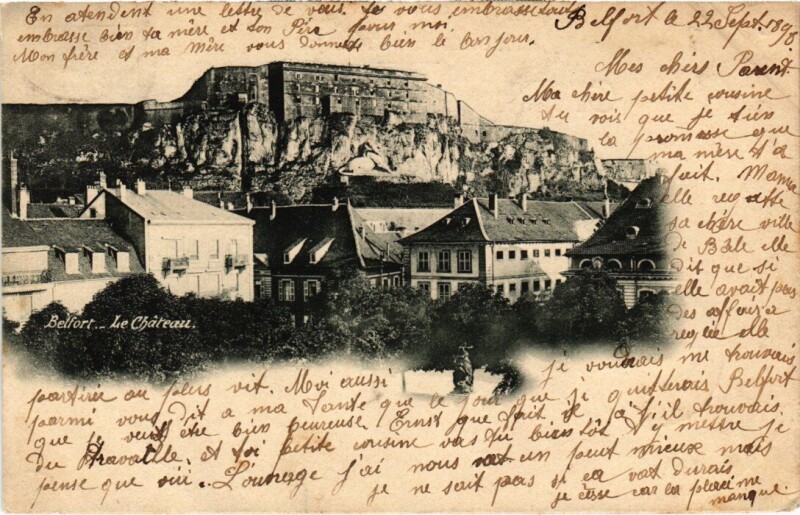 Belfort le 22 Sept. 1898
Mes chers Parent
Ma chère petite cousine
tu vois que je tien
la promesse que
ma mère t'a
fait. Mama
elle regette
sa chère ville
de Bâle elle
dit que si
elle avait pas
des affair à
reglée elle
partirée au plus vit. Moi aussi je voudrais me trouvais
parmi vous dit a ma Tante que le jour que je quitterais Belfort
que je veut être bien heureuse. Ernst que fait il, a-t'il trouvais
du travaille. et toi petite cousine vas tu bien tôt t'y mettre je
pense que oui. L'ouvrage j'ai nous vat un peut mieux mais
je ne sait pas si ça vat durais
je cesse car la place me
manque.
En atendent une lettre de vous. Je vous embrasse tous
embrasse bien ta mère et ton Père pour moi
Mon frère et ma Mère vous donnent bien le bonjour.
Belfort._ Le Château.